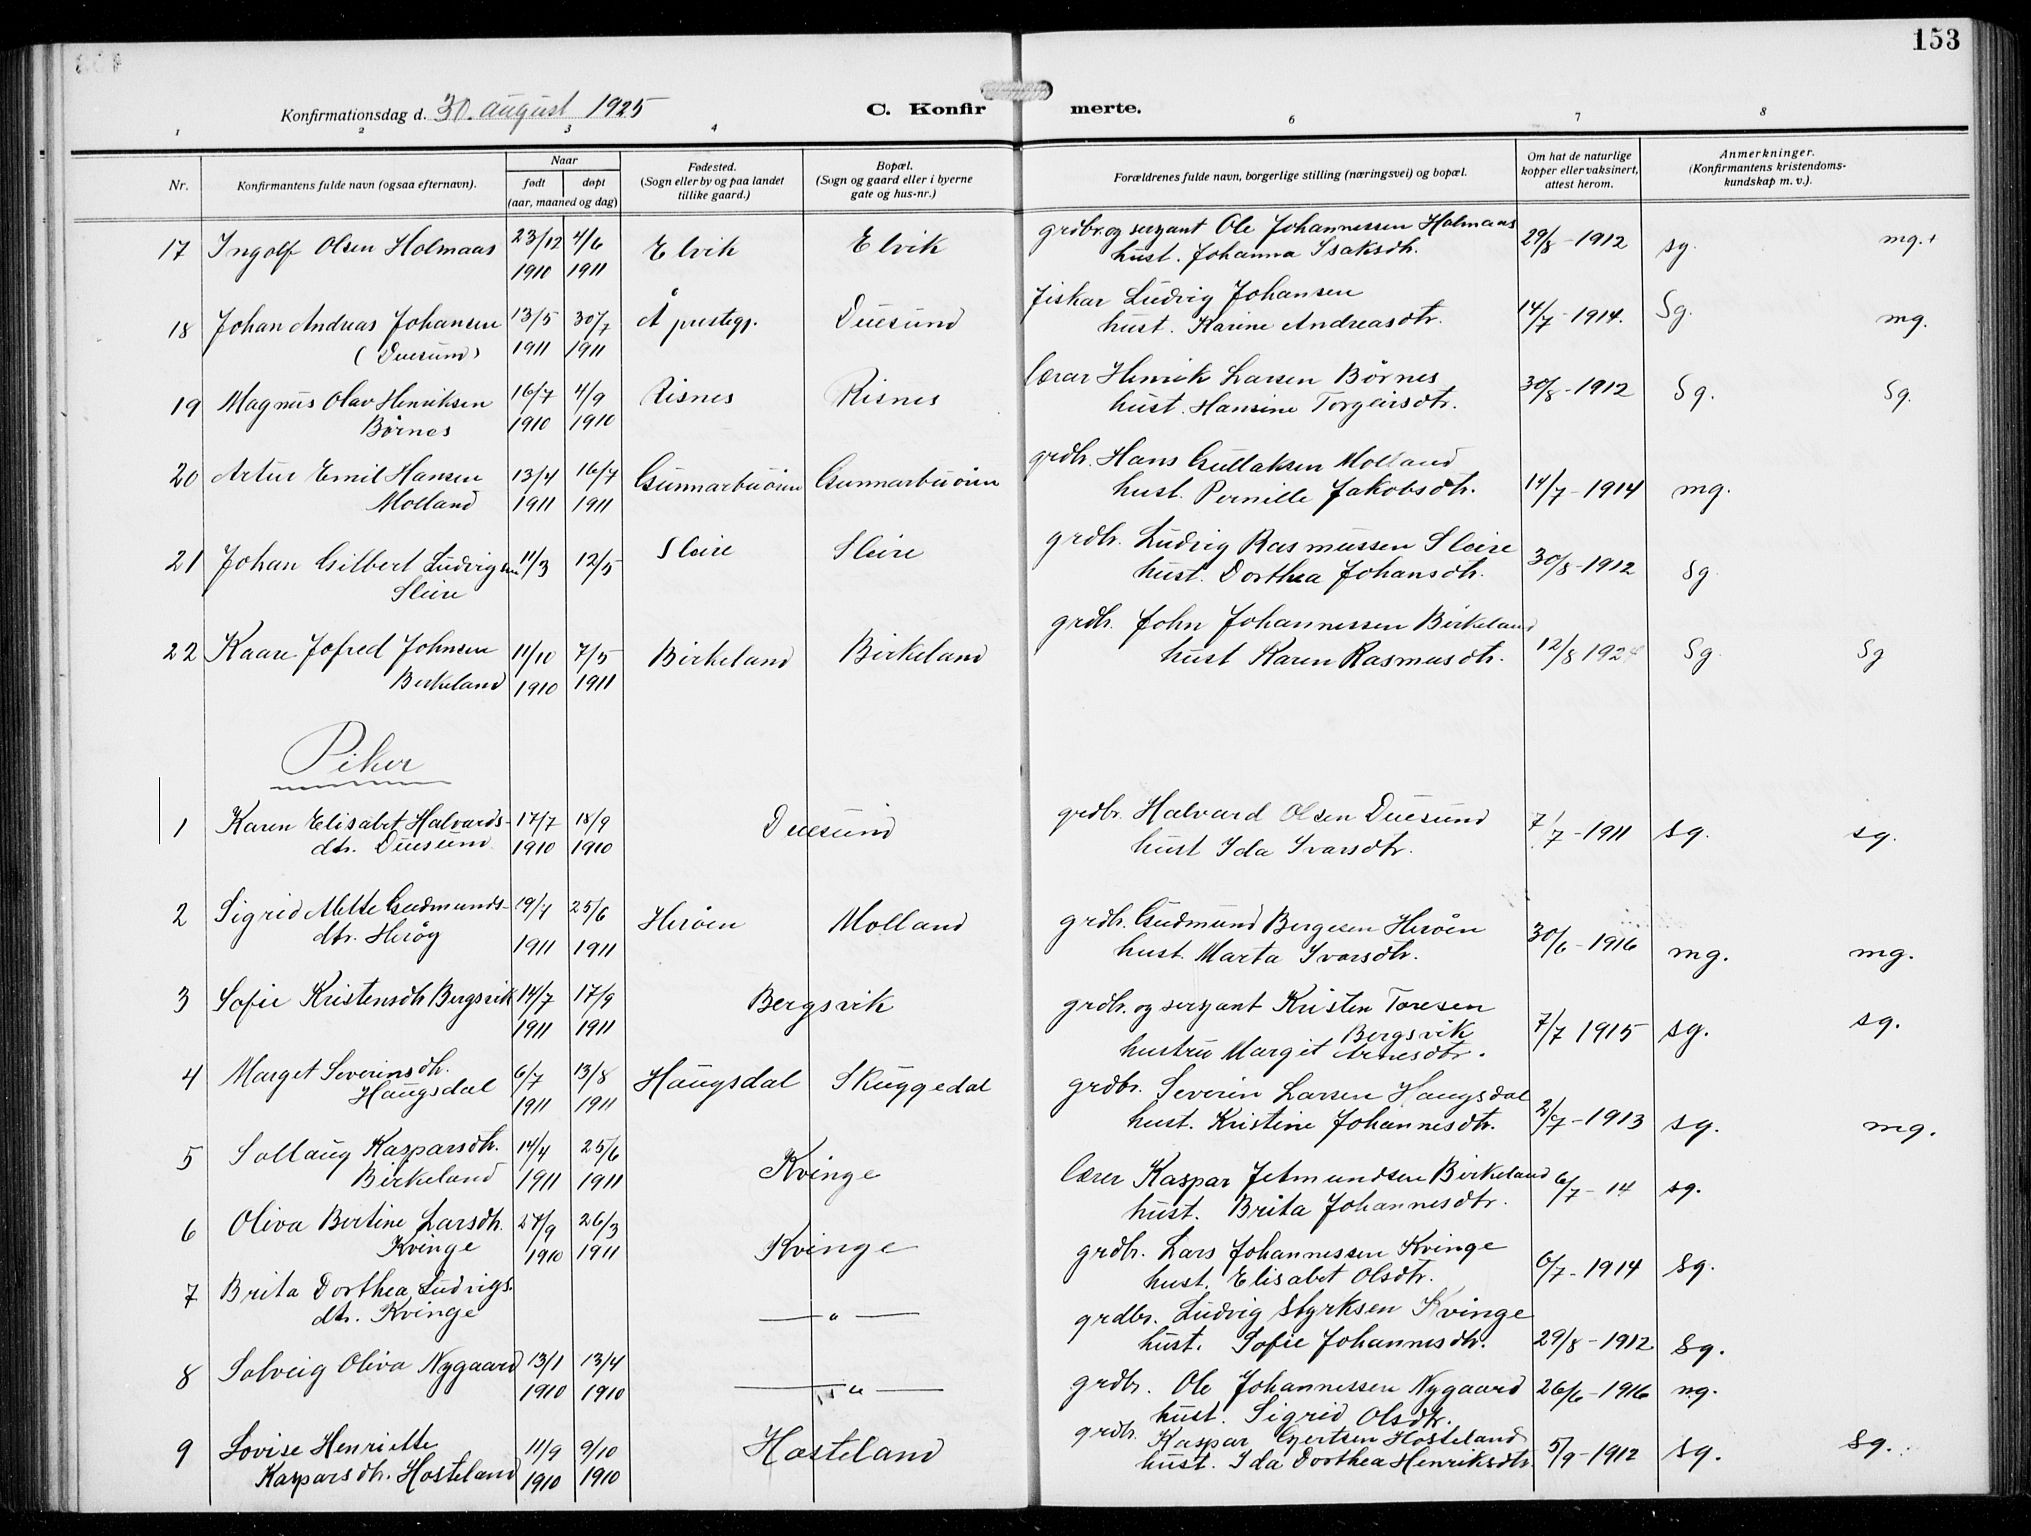 153
Konfirmationsdag d. 30. august 1925
C. Konfirmerte.
1 2 3 4 6 7 8
Nr.
Konfirmantens fulde navn (ogsaa efternavn).
Naar
født døpt
(aar, maaned og dag)
Fødested.
(Sogn eller by og paa landet
tillike gaard.)
Bopæl.
(Sogn og gaard eller i byerne
gate og hus-nr.)
Forældrenes fulde navn, borgerlige stilling (næringsvei) og bopæl.
Om hat de naturlige
kopper eller vaksinert,
attest herom.
Anmerkninger.
(Konfirmantens kristendoms-
kundskap m. v.).
17 Ingolf Olsen Holmaas 23/12 4/6 Elvik Elvik grdbr. og sersjant Ole Johannessen Holmaas 29/8-1912 sg. mg.+
1910 1911 hust. Johanna Isaksdtr.
18 Johan Andreas Johansen 13/5 30/7 Å prestegj. Duesund fiskar Ludvig Johansen 14/7-1914. Sg. mg.
(Duesund) 1911 1911 hust. Karine Andreasdtr.
19 Magnus Olav Henriksen 16/7 4/9 Risnes Risnes lærar Henrik Larsen Børnes 30/8-1912 Sg. Sg.
Børnes 1910 1910 hust. Hansine Torgeirsdtr.
20 Artur Emil Hansen 13/4 16/7 Gunnarbuöien Gunnarbuöien grdbr. Hans Gullaksen Molland 14/7-1914 mg.
Molland 1911 1911 hust. Pernille Jakobsdtr.
21 Johan Gilbert Ludvigsen 11/3 12/5 Sleire Sleire grdbr. Ludvig Rasmussen Sleire 30/8-1912 Sg.
Sleire hust. Dorthea Johansdtr.
22 Kaare Jofred Johnsen 11/10 7/5 Birkeland Birkeland grdbr. John Johannessen Birkeland 12/8 1924 Sg. Sg
Birkeland 1910 1911 hust Karen Rasmusdtr.
Piker
1 Karen Elisabet Halvards- 17/7 18/9 Duesund grdbr. Halvard Olsen Duesund 7/7-1911 sg. sg.
dtr. Duesund 1910 1910 hust Ida Ivarsdtr.
2 Sigrid Mette Gudmunds- 19/4 25/6 Heröen Molland grdbr. Gudmund Bergesen Heröen 30/6-1916 mg. mg.
dtr. Heröy 1911 1911 hust. Marta Ivarsdtr.
3 Sofie Kristensdtr. Bergsvik 14/7 17/9 Bergsvik grdbr. og sersjant Kristen Toresen 7/7 1915 sg. sg.
1911 1911 Bergsvik
hustru Margit Arnesdtr.
4 Marget Severinsdtr. 6/7 13/8 Haugsdal Skuggedal grdbr. Severin Larsen Haugsdal 2/7-1913 sg. mg.
Haugsdal 1911 1911 hust. Kristine Johannesdtr.
5 Sollaug Kasparsdtr. 14/4 25/6 Kvinge lærer Kaspar Jetmundsen Birkeland 6/7-14 sg.
Birkeland 1911 1911 hust. Brita Johannesdtr.
6 Oliva Bertine Larsdtr. 27/9 26/3 Kvinge grdbr. Lars Johannessen Kvinge 6/7-1914 Sg.
Kvinge 1910 1911 hust. Elisabet Olsdtr.
7 Brita Dorthea Ludvigs- — " — grdbr. Ludvig Styrksen Kvinge 29/8-1912 Sg.
dtr. Kvinge hust. Sofie Johannesdtr.
8 Solveig Oliva Nygaard 13/1 13/4 — " — grdbr. Ole Johannessen Nygaard 26/6-1916 ng.
1910 1910 hust. Sigrid Olsdtr.
9 Lovise Henriette 11/9 9/10 Hosteland grdbr. Kaspar Gjertsen Hosteland 5/9-1912 Sg. Sg.
Kasparsdtr. Hosteland 1910 1910 hust. Ida Dorthea Henriksdtr.